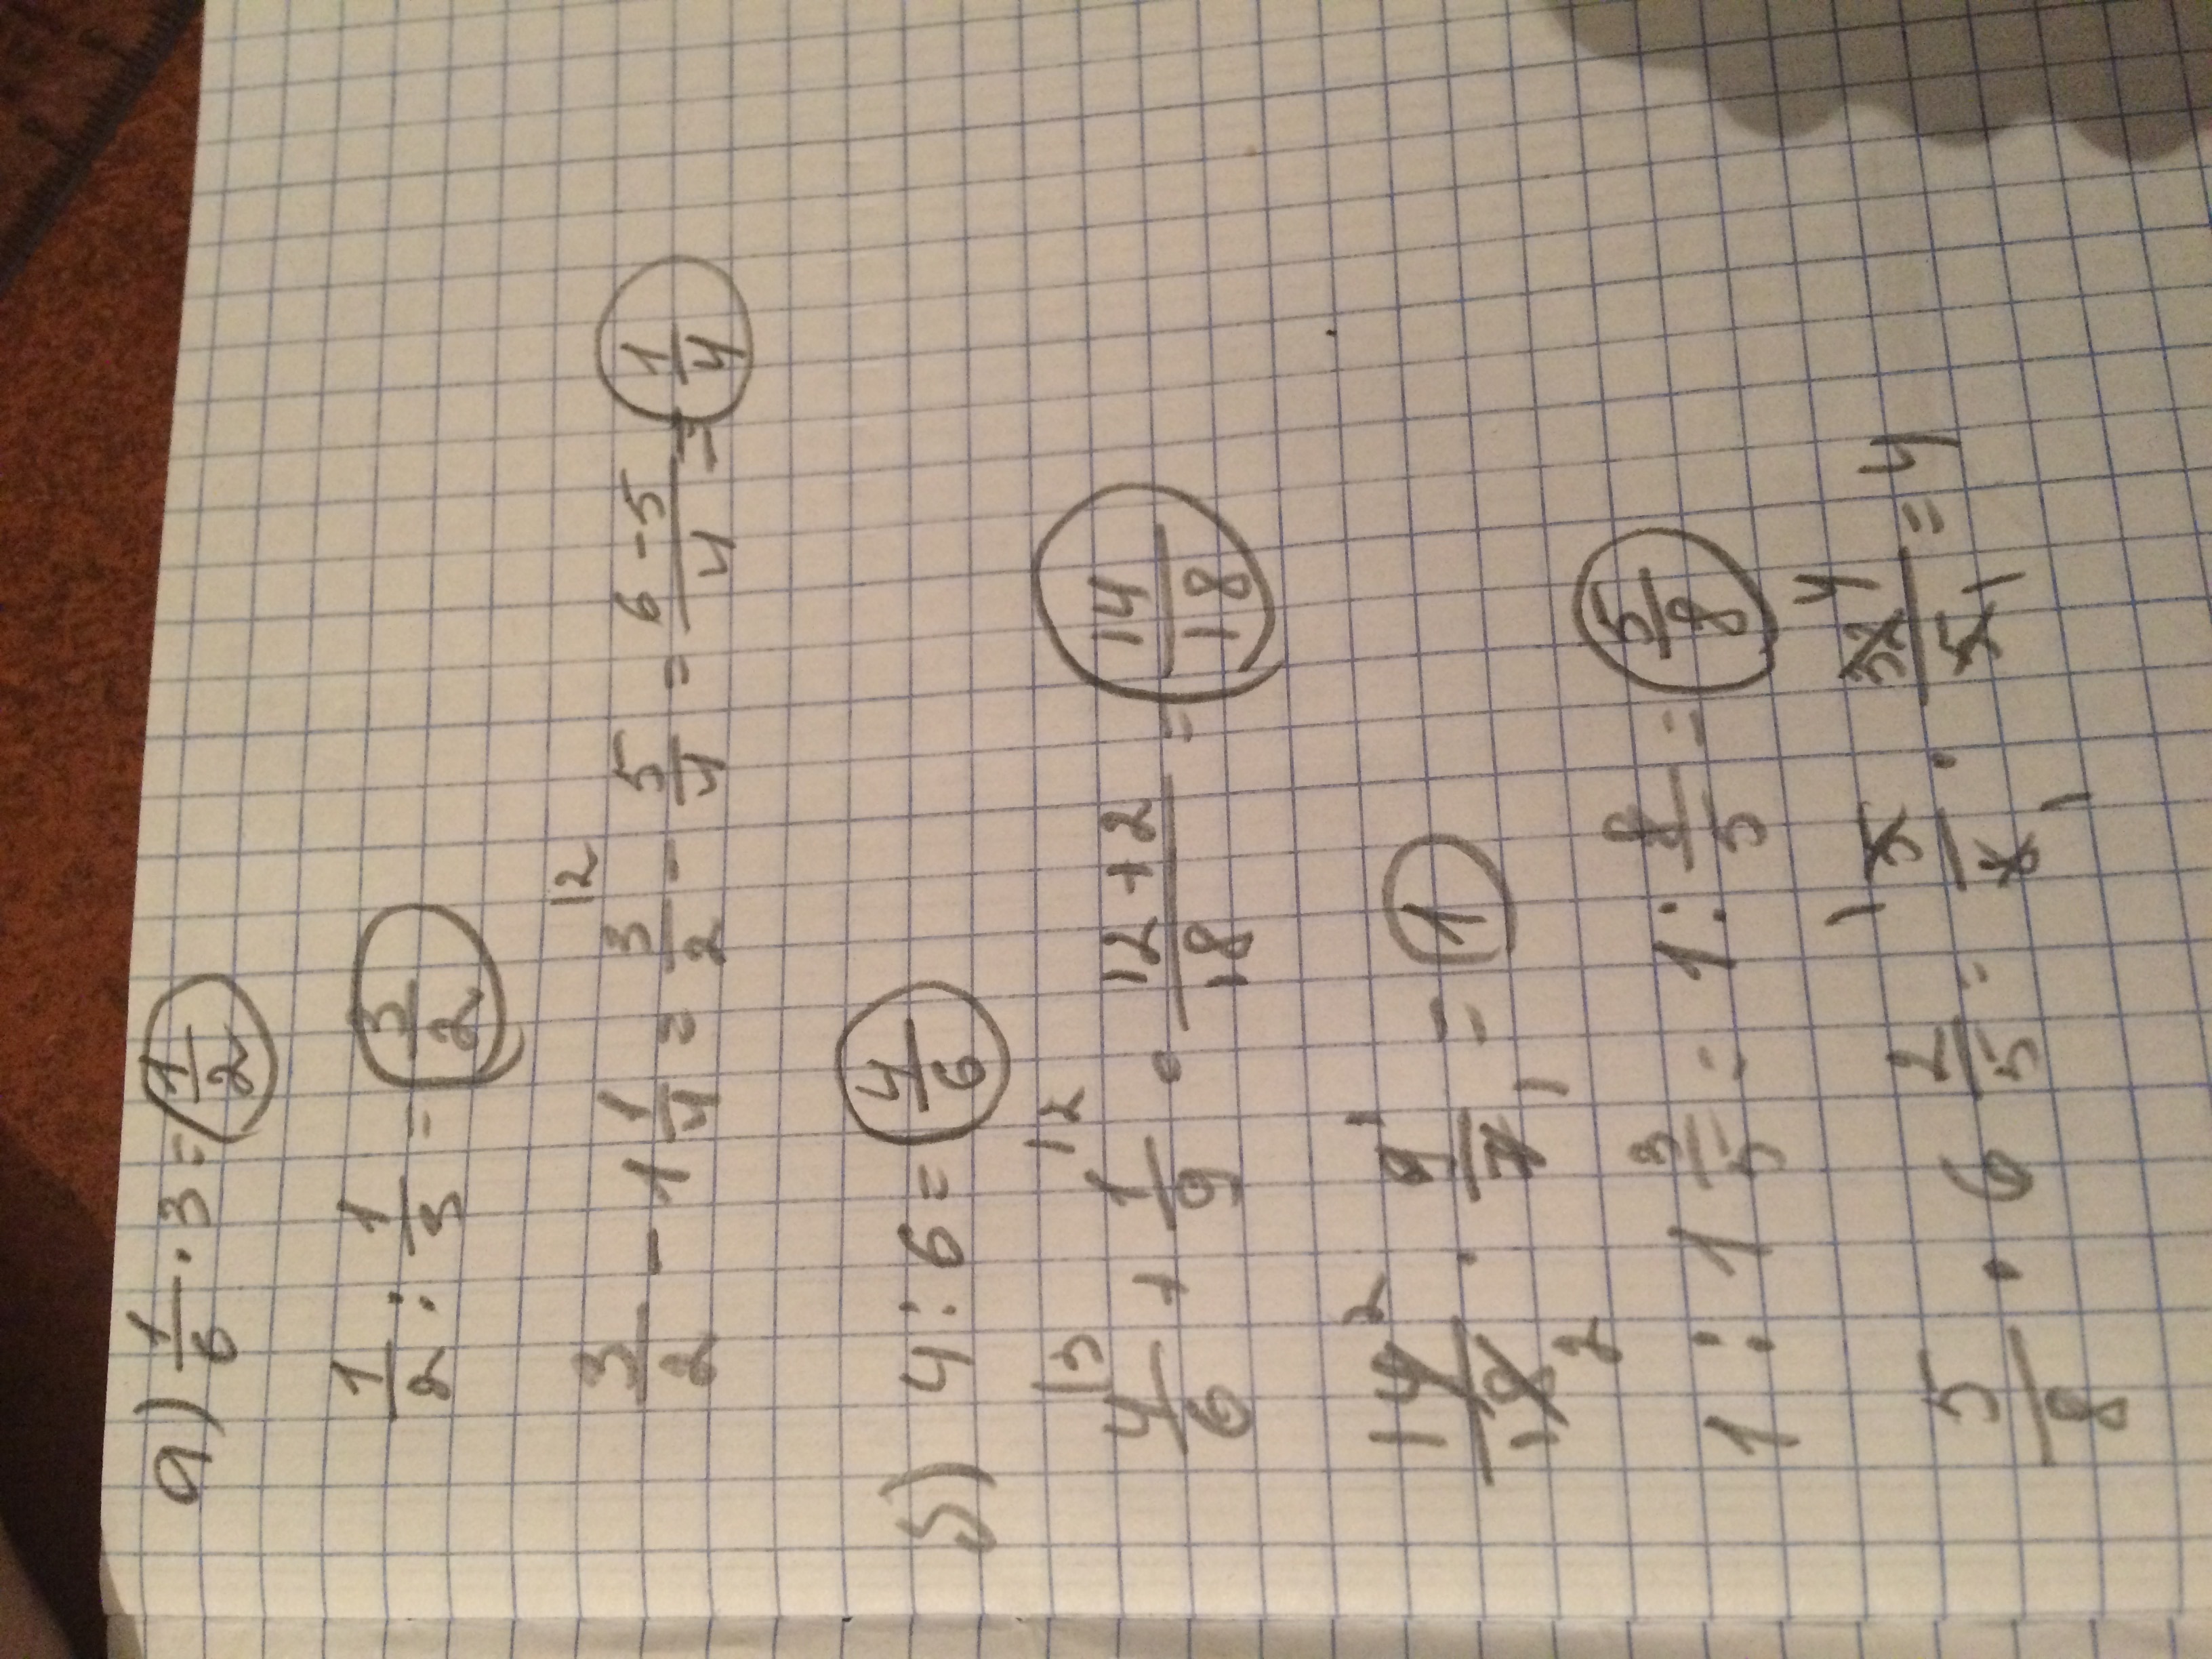 a) 1/6 · 3 = 1/2
1/2 : 1/3 = 3/2
3/2 - 1 1/4 = 3/2 |2 - 5/4 = 6-5/4 = 1/4
б) 4 : 6 = 4/6
4/6 |3 + 1/9 |2 = 12+2/18 = 14/18
14/18 2 2 · 9/7 1 1 = 1
1 : 1 3/5 = 1 : 8/5 = 5/8
5/8 · 6 2/5 = 1 5/8 1 · 32/5 4 1 = 4